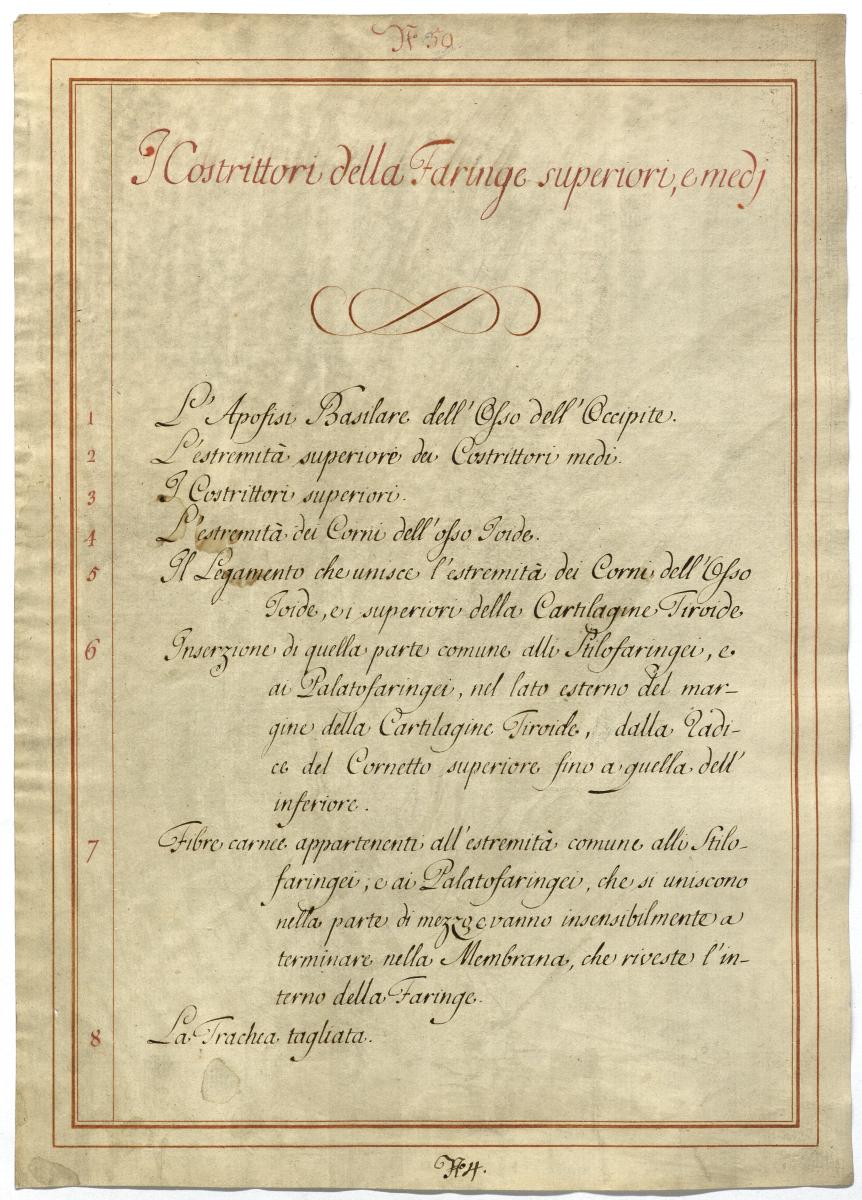 N.º 59.
I Costrittori della Faringe superiori, e medj
1 L'Apofisi Basilare dell'Osso dell'Occipite.
2 L'estremità superiore dei Costrittori medi.
3 I Costrittori superiori.
4 L'estremità dei Corni dell'osso Ioide.
5 Il Legamento che unisce l'estremità dei Corni dell'Osso
Ioide, e i superiori della Cartilagine Tiroide
6 Inserzione di quella parte comune alli Stilofaringei, e
ai Palatofaringei, nel lato esterno del mar-
gine della Cartilagine Tiroide, dalla Radi-
ce del Cornetto superiore fino a quella dell'
inferiore.
7 Fibre carnee appartenenti all'estremità comune alli Stilo-
faringei, e ai Palatofaringei, che si uniscono
nella parte di mezzo e vanno insensibilmente a
terminare nella Membrana, che riveste l'in-
terno della Faringe.
8 La Trachea tagliata.
N.º 4.